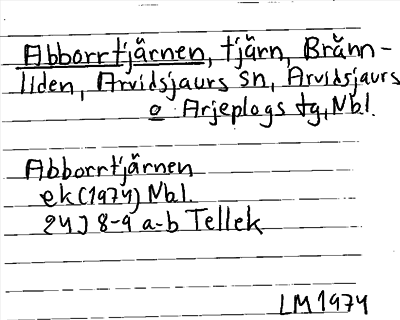 Abborrtjärnen, tjärn, Bränn-
liden, Arvidsjaurs sn, Arvidsjaurs
o Arjeplogs tg, Nbl.
Abborrtjärnen
ek (1974) Nbl.
24J 8-9 a-b Tellek
LM 1974